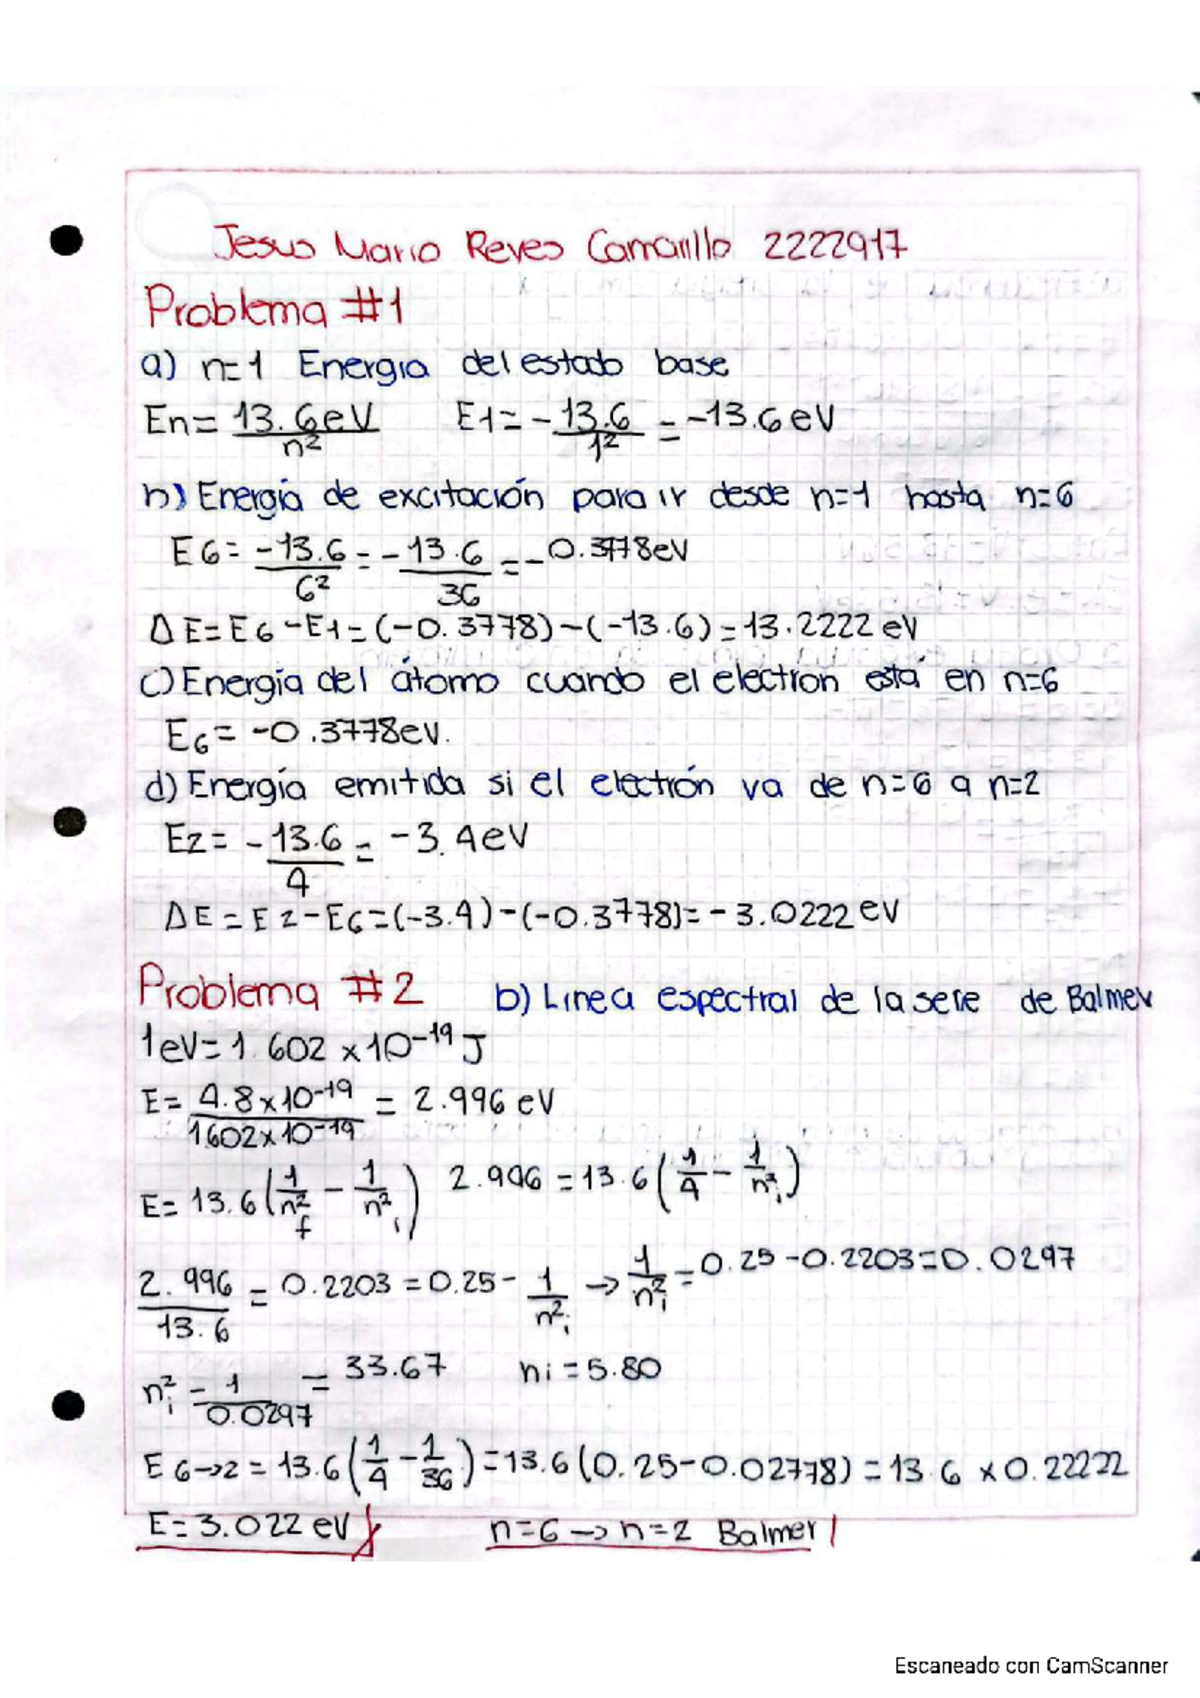 Jesus Mario Reyes Camarillo 2222917
Problema #1
a) n=1 Energia del estado base
En= 13.6eV/n² E1= -13.6/1² = -13.6eV
b) Energía de excitación para ir desde n=1 hasta n=6
E6= -13.6/6² = -13.6/36 = -0.3778eV
ΔE=E6-E1=(-0.3778)-(-13.6)=13.2222 eV
c) Energía del átomo cuando el electron está en n=6
E6= -0.3778eV.
d) Energía emitida si el electrón va de n=6 a n=2
E2= -13.6/4 = -3.4eV
ΔE=E2-E6=(-3.4)-(-0.3778)=-3.0222 eV
Problema #2 b) Linea espectral de la serie de Balmer
1eV=1.602 x10⁻¹⁹J
E= 4.8x10⁻¹⁹/1602x10⁻¹⁹ = 2.996 eV
E= 13.6(1/n²f - 1/n²i) 2.996=13.6(1/4 - 1/n²i)
2.996/13.6 = 0.2203=0.25- 1/n²i → 1/n²i = 0.25-0.2203=0.0297
n²i = 1/0.0297 = 33.67 ni=5.80
E 6→2 = 13.6(1/4 - 1/36)=13.6(0.25-0.02778)=13.6 x0.22222
E=3.022 eV n=6→n=2 Balmer
Escaneado con CamScanner